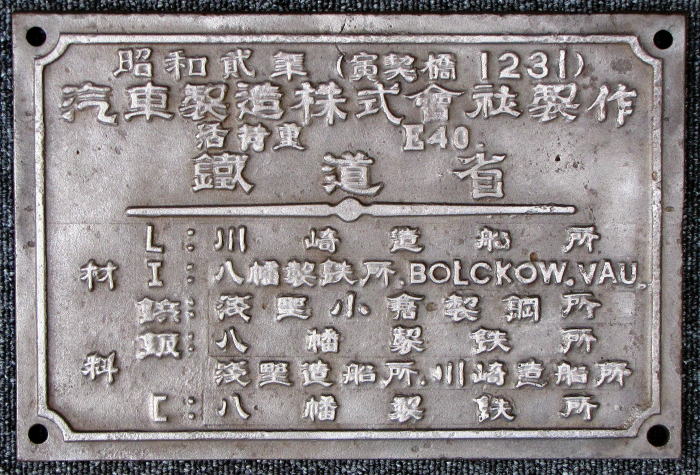 昭和貳年 (寅契橋 1231)
汽車製造株式會社製作
活荷重 E40.
鐵道省
L: 川崎造船所
材 I: 八幡製鉄所. BOLCKOW. VAU.
鋲: 浅野小倉製鋼所
鈑: 八幡製鉄所
料 浅野造船所. 川崎造船所
[: 八幡製鉄所